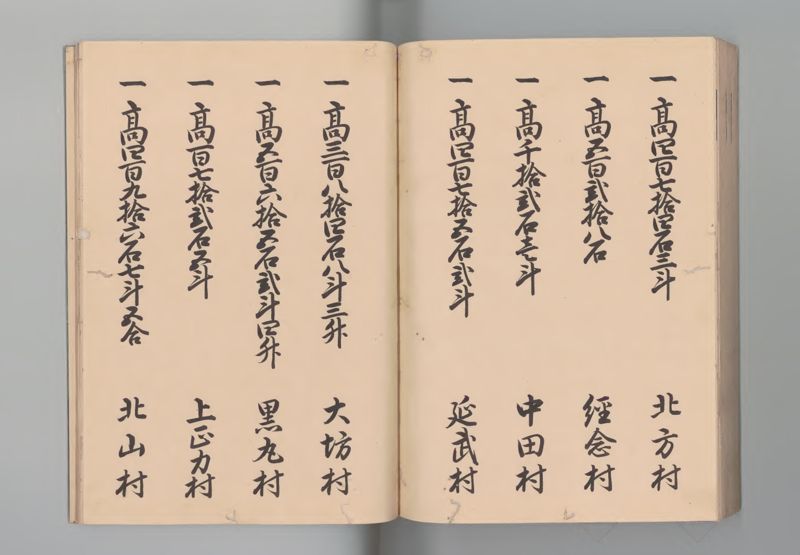 一高四百七拾四石三斗 北方村
一高五百弐拾八石 經念村
一高千拾弐石壱斗 中田村
一高四百七拾五石弐斗 延武村
一高三百八拾四石八斗三升 大坊村
一高五百六拾五石弐斗四升 黒丸村
一高百七拾弐石五斗 上正力村
一高四百九拾六石七斗五合 北山村